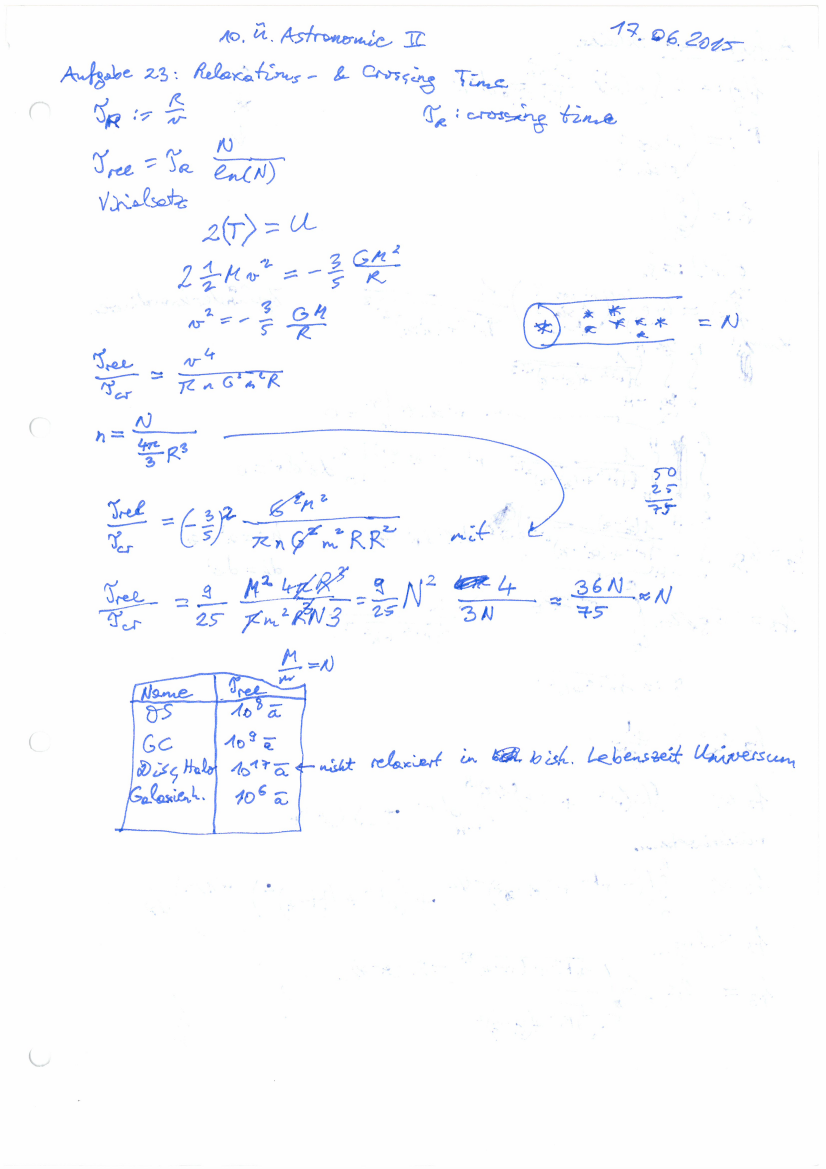 10. Ü. Astronomie II
17.06.2015
Aufgabe 23: Relaxations- & Crossing Time
τ_R := R/v
τ_R : crossing time
τ_rel = τ_R N/ln(N)
Virialsatz
2⟨T⟩ = U
2 1/2 M v² = - 3/5 GM²/R
v² = - 3/5 GM/R
* * * * * * * * = N
τ_rel/τ_cr = v⁴/(π n G² m² R)
n = N/(4π/3 R³)
50
25
75
τ_rel/τ_cr = (-3/5)² G²M²/(π n G² m² R R²) mit
τ_rel/τ_cr = 9/25 M² 4πR³/(π m² R³ N 3) = 9/25 N² 4/3N ≈ 36N/75 ≈ N
M/m = N
Name τ_rel
OS 10⁸ a
GC 10⁹ a
Disc, Halo 10¹⁷ a ← nicht relaxiert in bish. Lebenszeit Universum
Galaxienh. 10⁶ a